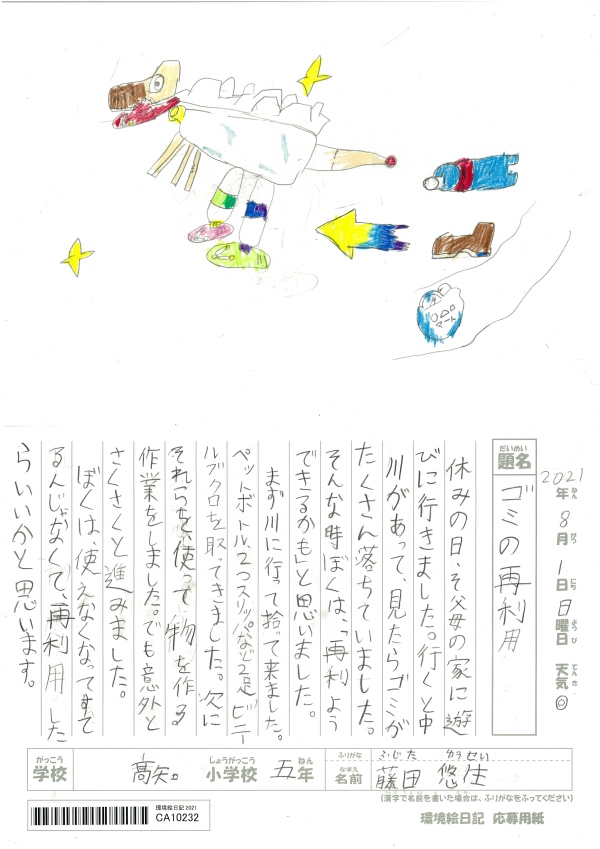 ○△□
マート
2021年 8月 1日 日曜日 天気◎
ねん がつ にち ようび てんき
だいめい
題名
ゴミの再利用
休みの日、そ父母の家に遊
びに行きました。行くと中
川があって、見たらゴミが
たくさん落ちていました。
そんな時ぼくは、「再利よう
できるかも」と思いました。
まず川に行って拾って来ました。
ペットボトル、2つスリッパなど2足 ビニー
ルブクロを取ってきました。次に
それらを、使って物を作る
作業をしました。でも意外と
さくさくと進みました。
ぼくは、使えなくなってすて
るんじゃなくて、再利用した
らいいかと思います。
がっこう しょうがっこう ねん
学校 高矢 小学校 五年
ふりがな ふじた ゆうせい
なまえ
名前 藤田 悠生
(漢字で名前を書いた場合は、ふりがなをふってください)
環境絵日記 2021
CA10232
環境絵日記 応募用紙